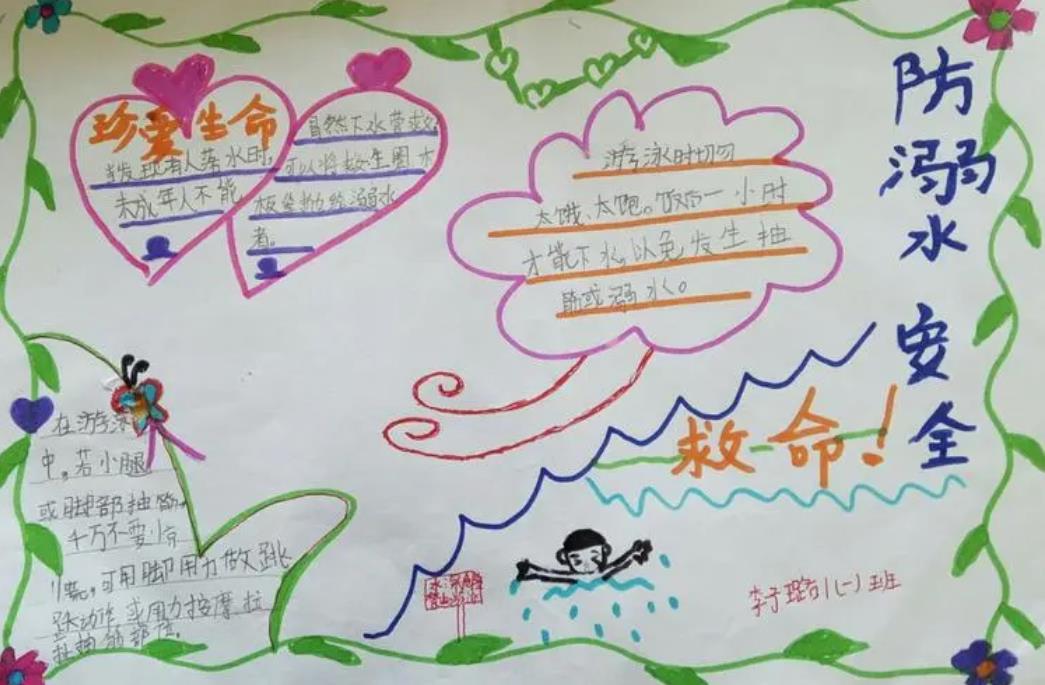 防溺水 安全
珍爱生命
当发现有人落水时,
未成年人不能
冒然下水营救,
可以将救生圈 木
板等抛给溺水
者。
游泳时切勿
太饿、太饱。饭后一小时
才能下水,以免发生抽
筋或溺水。
救命!
在游泳
中,若小腿
或脚部抽筋,
千万不要惊
慌,可用脚用力做跳
跃动作,或用力按摩拉
扯抽筋部位。